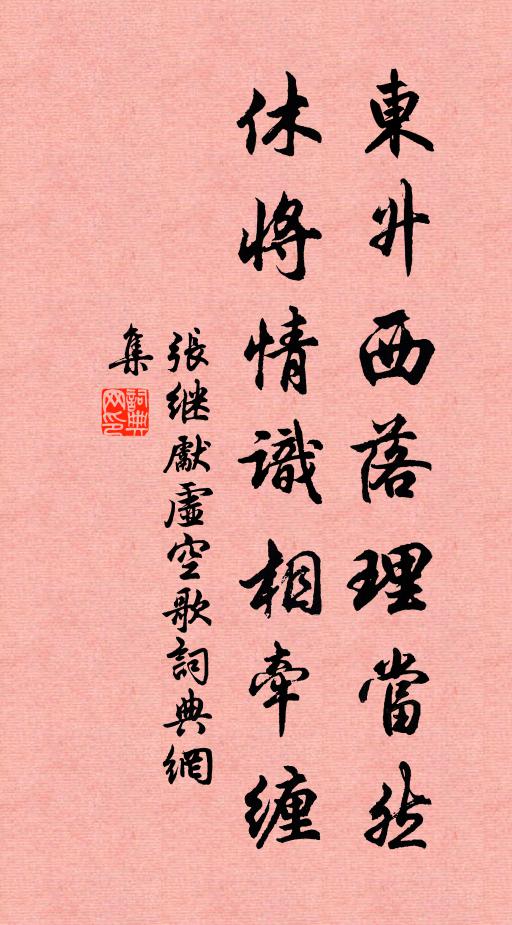 東升西落理當然
休將情識相牽纏
張继獻虛空歌詞典網
集
詞典
网印